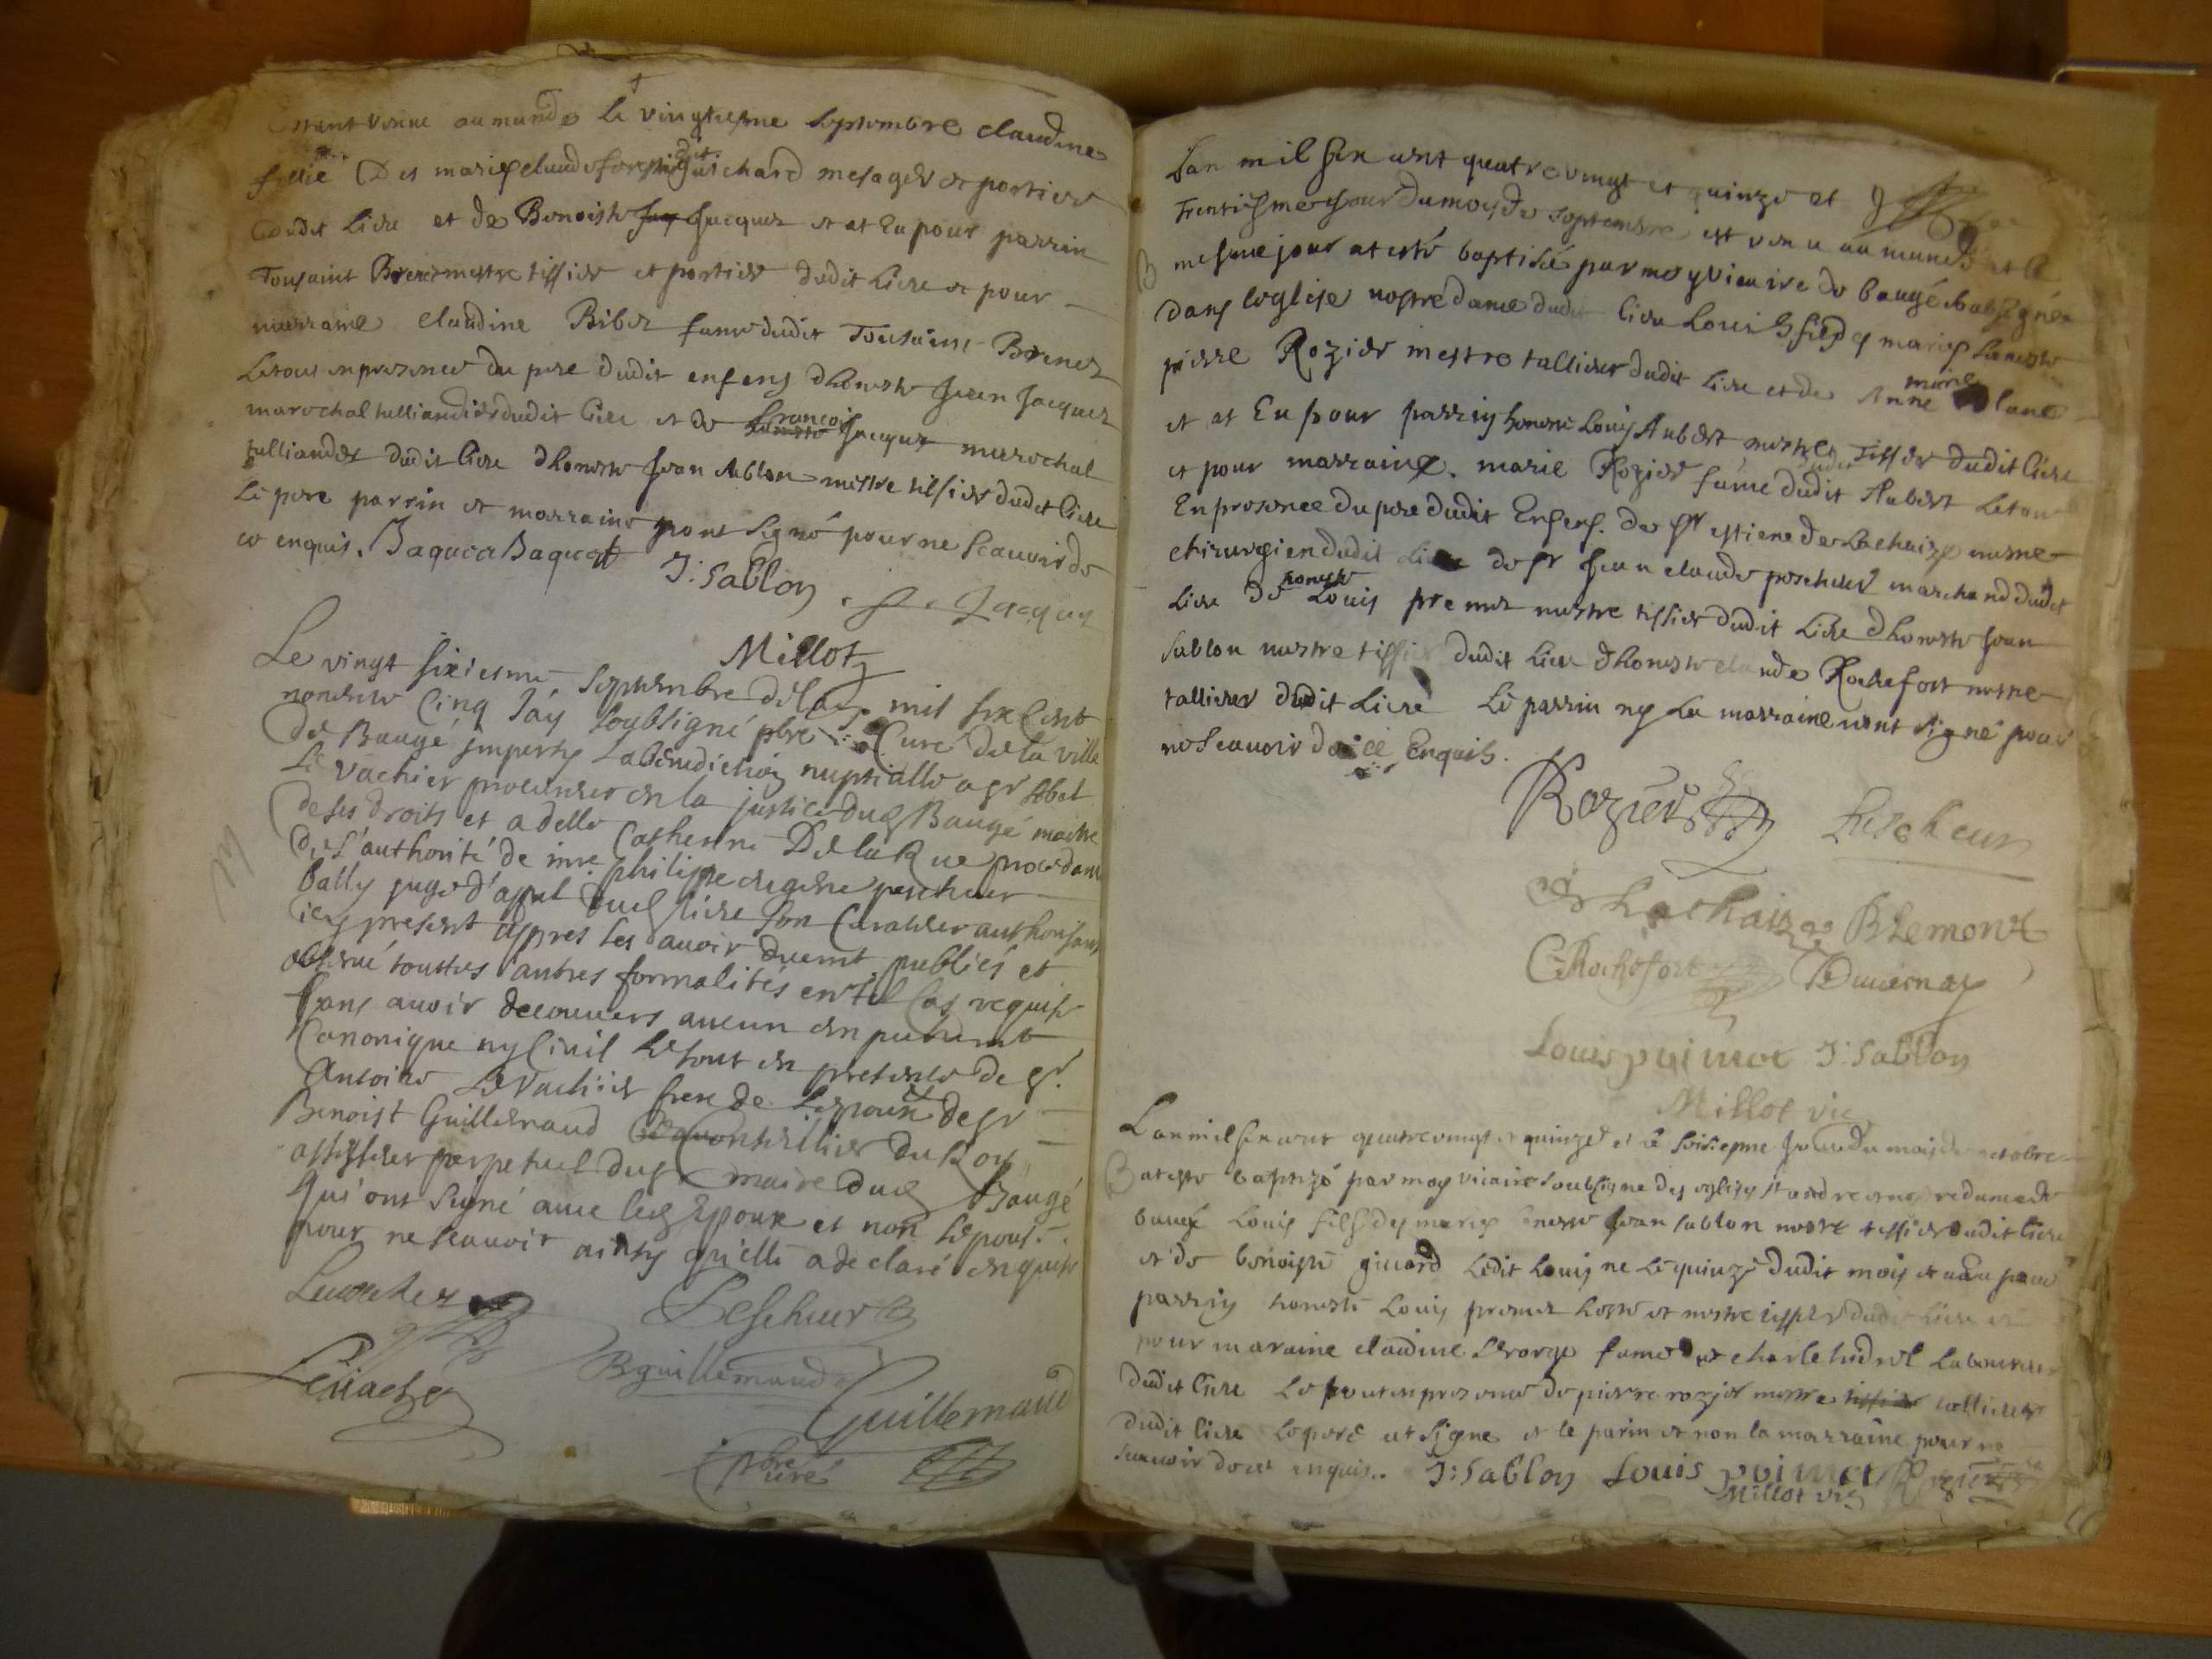 Estant venue au monde le vingtiesme septembre claudine
fille Des maries claude forest dit Guichard mesager et portier
dudit lieu et de Benoiste Jacquez et at Eu pour parrin
Tousaint Brenez mestre tissier et portier dudit lieu et pour
marraine claudine Bibet fame dudit Tousaint Brenez
Letout en presence du pere dudit enfens dhoneste Jean Jacquez
marechal talliandier dudit lieu et de francois Jacquez marechal
talliander dudit lieu dhoneste Jean sablon mestre tissier dudit lieu
Le pere parrin et marraine nont signé pour ne scauoir de
ce enquis. J: Sablon Jacquez
Millot
Le vingt sixiesme septembre de l'an mil six cent
nonente cinq J'ay soubsigné pbre Curé de la ville
de Baugé imparty la benediction nuptialle a sr Abel
Le Vachier procureur en la justice dud Baugé maitre
de ses droits et a delle Catherine De la Rue procedant
de l'authorité de mre philippe eugene pescheur
bally juge d'apel dud lieu son Curateur authorisant
icy present apres les auoir duemt publiés et
obserué touttes autres formalités en tel Cas requise
sans auoir decouuers aucun enpechemt
Canonique ny Ciuil Le tout en presence de sr
Antoine Le Vachier frere de Lepoux de sr
Benoist Guillemaud Conseillier du Roy
assesseur perpetuel du sr maire dud Baugé
qui ont signé auec led Epoux et non Lepouse
pour ne scauoir ainsy qu'elle a declaré enquise
Leuachez Pescheur
Leuacher B guillemaud
Guillemaud
pbre curé
Lan mil six cent quatre vingt et quinze et
Trentiesme jour du mois de septembre est venu au monde et le
B mesme jour at esté baptisé par moy vicaire de baugé soubsigné
dans leglise nostre dame dudit lieu Louis fils des maries honeste
pierre Rozier mestre tallieur dudit lieu et de Anne marie
et at Eu pour parrin honeste Louis Aubert mestre Tissier dudit lieu
et pour marraine marie Rozier fame dudit Aubert Letout
En presence du pere dudit Enfens. de sr estiene de Lachaize mestre
chirurgien dudit lieu de sr Jean claude pescheur marchand dudit
lieu de honeste Louis premet mestre tissier dudit Lieu dhoneste Jean
sablon mestre tissier dudit lieu dhoneste claude Rochefort mestre
tallieur dudit Lieu Le parrin ny La marraine nont signé pour
ne scauoir de ce Enquis.
Rozier Pescheur
De Lachaize BLemont
C Rochefort Duuernay
Louis prémet J: Sablon
Millot vic
Lan mil six cent quatre vingt et quinze et le seisiepme Jour du mois de octobre
B at esté baptizé par moy vicaire soubsigne des eglises st andre et notre dame de
baugé Louis fils des maries honeste Jean sablon mestre tissier dudit lieu
et de benoiste girard Ledit Louis ne le quinze dudit mois et a eu pour
parrin honeste Louis premet hoste et mestre tissier dudit lieu et
pour maraine claudine George fame de charle hudrol Laboureur
dudit lieu Le tout en presence de pierre rozier mestre tallieur
dudit lieu Le pere at signe et le parin et non la marraine pour ne
scauoir de ce enquis. J: Sablon Louis prémet Rozier
Millot vic